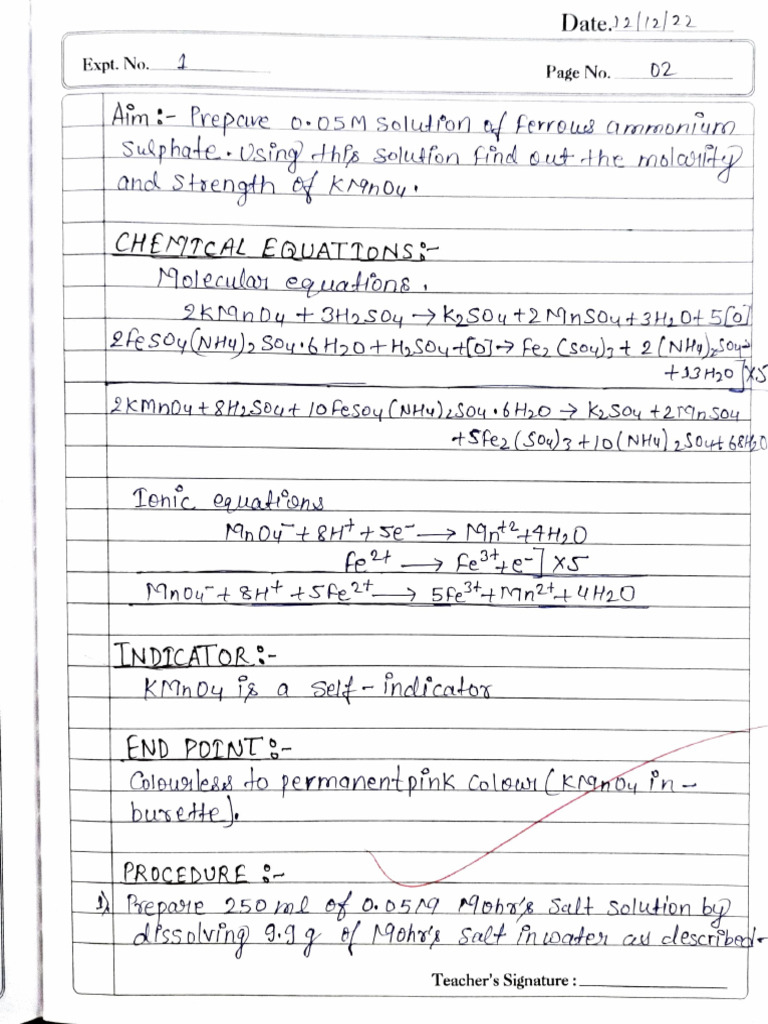 Date. 12/12/22
Expt. No. 1
Page No. 02
Aim :- Prepare 0.05M solution of ferrous ammonium
sulphate. Using this solution find out the molarity
and strength of KMnO4.
CHEMICAL EQUATIONS:-
Molecular equations.
2KMnO4 + 3H2SO4 → K2SO4 + 2MnSO4 + 3H2O + 5[O]
2FeSO4(NH4)2SO4·6H2O + H2SO4 + [O] → Fe2(SO4)3 + 2(NH4)2SO4
+ 13H2O]×5
2KMnO4 + 8H2SO4 + 10FeSO4(NH4)2SO4·6H2O → K2SO4 + 2MnSO4
+ 5Fe2(SO4)3 + 10(NH4)2SO4 + 68H2O
Ionic equations
MnO4⁻ + 8H⁺ + 5e⁻ → Mn⁺² + 4H2O
Fe²⁺ → Fe³⁺ + e⁻] ×5
MnO4⁻ + 8H⁺ + 5Fe²⁺ → 5Fe³⁺ + Mn²⁺ + 4H2O
INDICATOR :-
KMnO4 is a self-indicator
END POINT :-
Colourless to permanent pink colour (KMnO4 in-
burette).
PROCEDURE :-
1) Prepare 250 ml of 0.05M Mohr's salt solution by
dissolving 9.9 g of Mohr's salt in water as described-
Teacher's Signature :